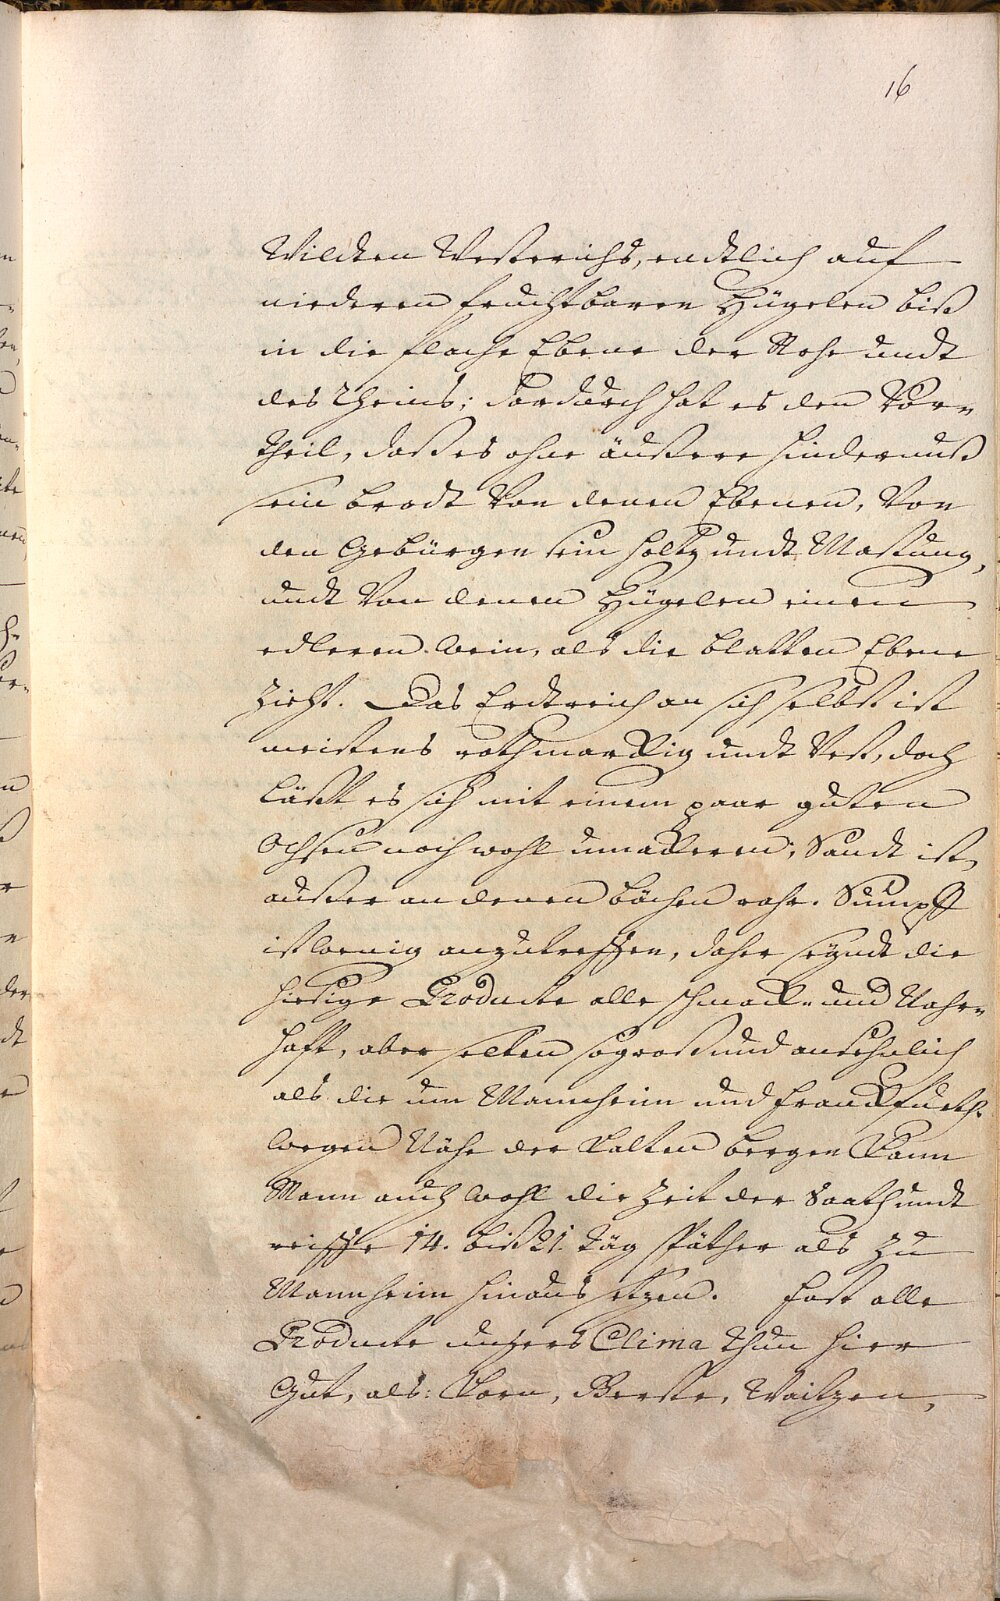 16
Wildten Westerichs, endtlich auf
niederen fruchtbaren Hügelen biß
in die flache Ebene der Nohe undt
des Rheins; dardurch hat es den Vor=
theil, daß es ohne äußere hindernuß
sein brodt Von denen Ebenen, Von
den Gebürgen sein holtz undt Mastung,
undt Von denen Hügelen einen
edleren wein, als die blatten Ebene
Zieht. Das Erdtreich an sich selbst ist
meistens rothmarckig undt Vest, doch
läst es sich mit einem paar guten
Ochsen noch wohl umackeren; Sandt ist,
außer an denen bächen rahr. Sumpff
ist wenig anzutreffen, daher seyndt die
hiesige Producte alle schmack= und Nahr=
hafft, aber selten so groß und ansehnlich
als die um Mannheim und Franckfurth.
Wegen Nähe der Kalten bergen Kann
Mann auch wohl die Zeit der Saath undt
reiffe 14. biß 21. Täg späther als Zu
Mannheim hinaus setzen. Fast alle
Producte unsers Clima thun hier
Gut, als: Korn, Gerste, Waitzen,